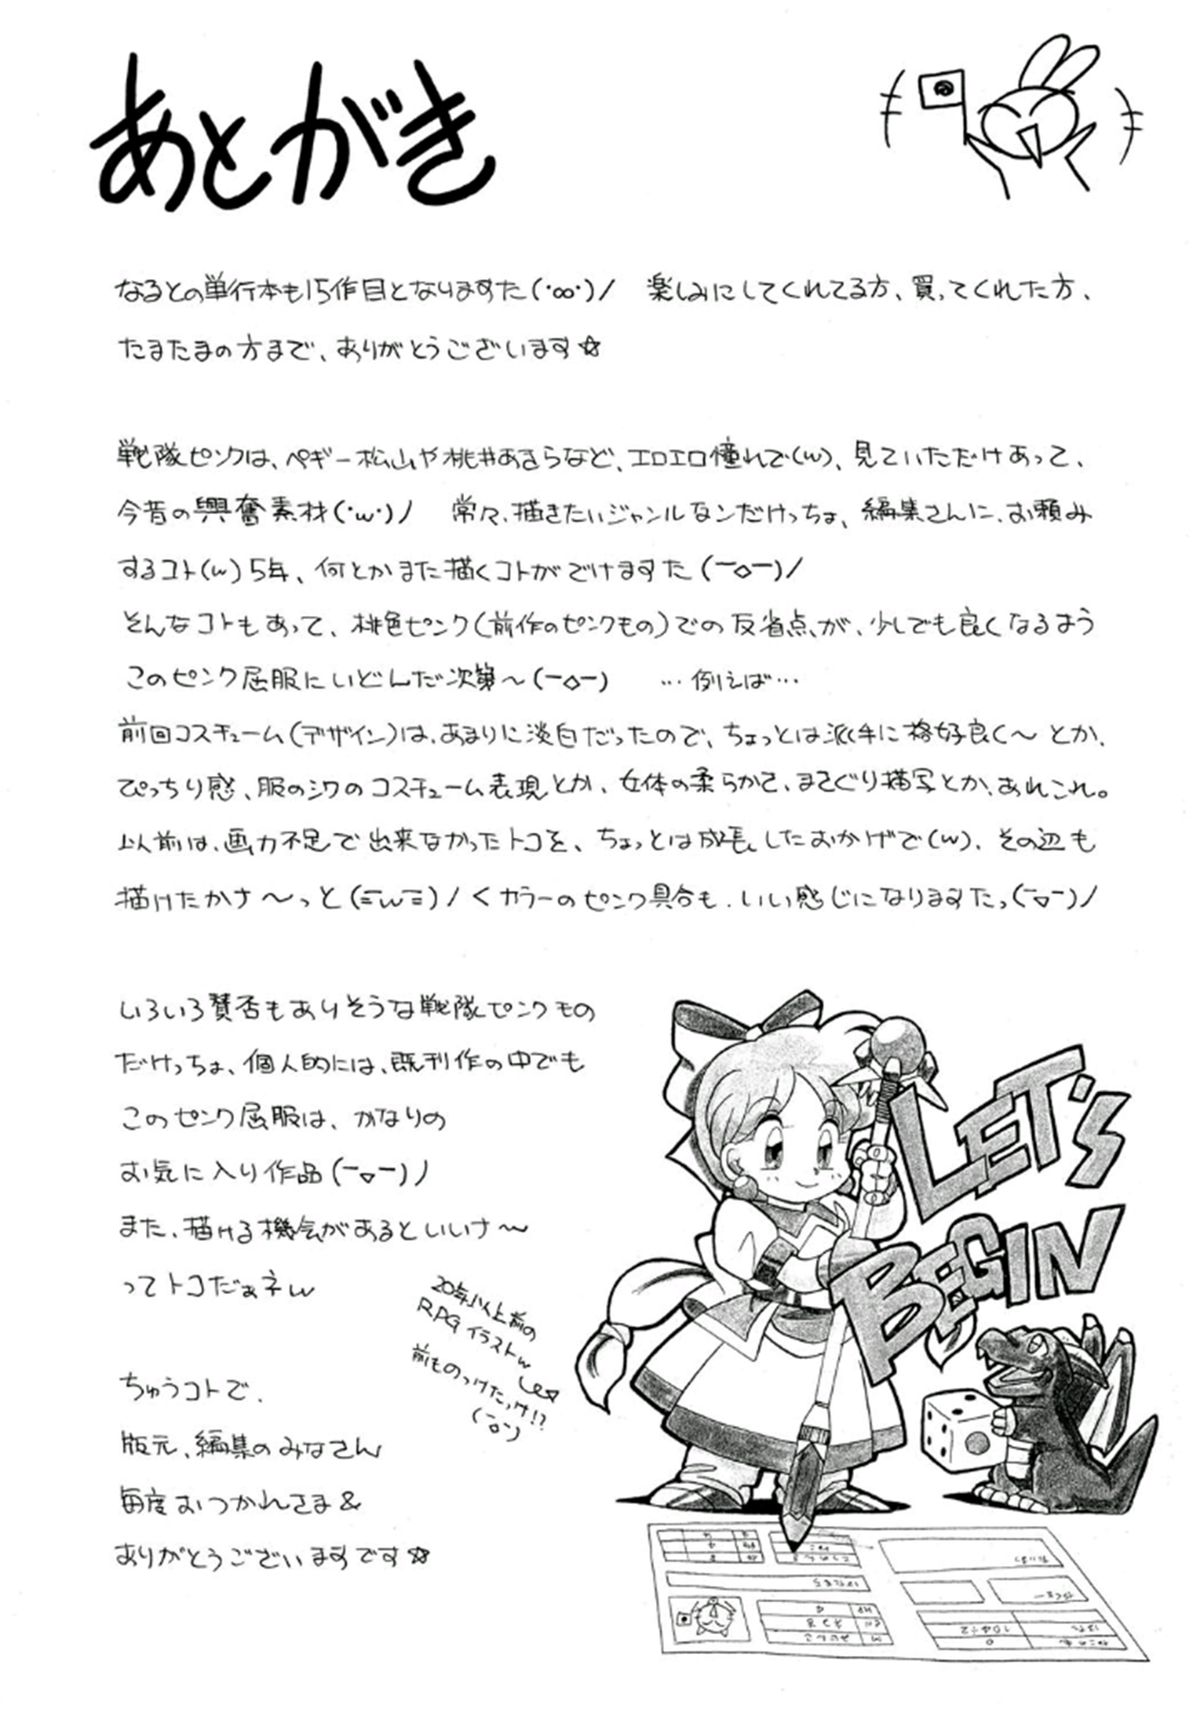 あとがき
なるとの単行本も15作目となりますた(・∞・)/　楽しみにしてくれてる方、買ってくれた方、
たまたまの方まで、ありがとうございます☆
戦隊ピンクは、ペギー松山や桃井あきらなど、エロエロ憧れで(w)、見ていただけあって、
今昔の興奮素材(・w・)ノ　常々、描きたいジャンルなンだけっちょ、編集さんに、お頼み
するコト(w)5年、何とかまた描くコトがでけますた(ー◇ー)/
そんなコトもあって、桃色ピンク(前作のピンクもの)での反省点が、少しでも良くなるよう
このピンク屈服にいどんだ次第〜(ー◇ー)　…例えば…
前回コスチューム(デザイン)は、あまりに淡白だったので、ちょっとは派手に格好良く〜とか、
ぴっちり感、服のシワのコスチューム表現とか、女体の柔らかさ、まさぐり描写とか、あれこれ。
以前は、画力不足で出来なかったトコを、ちょっとは成長したおかげで(w)、その辺も
描けたかナ〜っと(ΞwΞ)/くカラーのピンク具合も、いい感じになりますたっ(ー▽ー)/
いろいろ賛否もありそうな戦隊ピンクもの
だけっちょ、個人的には、既刊作の中でも
このピンク屈服は、かなりの
お気に入り作品(ー▽ー)ノ
また、描ける機会があるといいナ〜
ってトコだぁネw
ちゅうコトで、
版元、編集のみなさん
毎度おつかれさま&
ありがとうございますです☆
20年以上前の
RPGイラストw
前ものっけたっけ!?
LET'S
BEGIN
HP